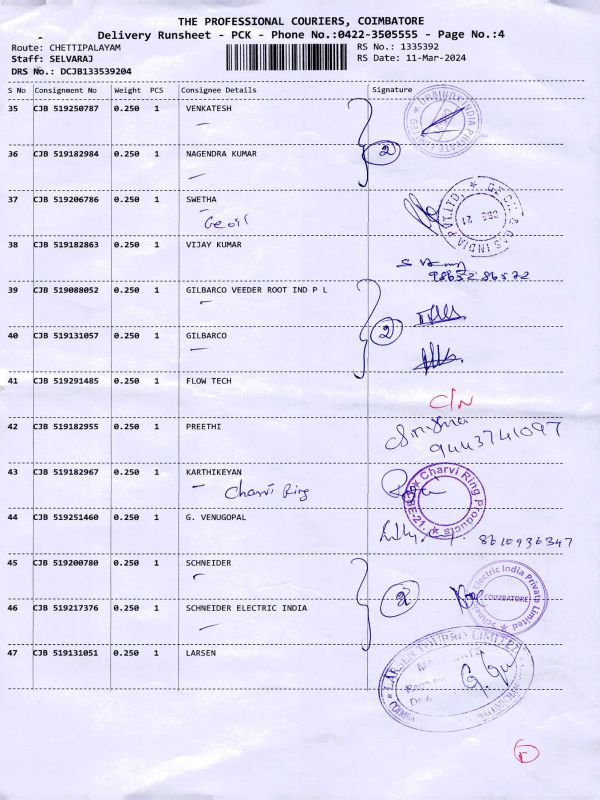 THE PROFESSIONAL COURIERS, COIMBATORE
Delivery Runsheet - PCK - Phone No.:0422-3505555 - Page No.:4
Route: CHETTIPALAYAM RS No.: 1335392
Staff: SELVARAJ RS Date: 11-Mar-2024
DRS No.: DCJB133539204
S No Consignment No Weight PCS Consignee Details Signature
35 CJB 519250787 0.250 1 VENKATESH
36 CJB 519182984 0.250 1 NAGENDRA KUMAR 2
37 CJB 519206786 0.250 1 SWETHA
Geoil
38 CJB 519182863 0.250 1 VIJAY KUMAR
39 CJB 519088052 0.250 1 GILBARCO VEEDER ROOT IND P L
40 CJB 519131057 0.250 1 GILBARCO 2
41 CJB 519291485 0.250 1 FLOW TECH
C/N
42 CJB 519182955 0.250 1 PREETHI
9443741097
43 CJB 519182967 0.250 1 KARTHIKEYAN
Charvi Ring
Charvi Ring Products
44 CJB 519251460 0.250 1 G. VENUGOPAL
8610936347
45 CJB 519200780 0.250 1 SCHNEIDER
2
Schneider Electric India Private Limited
COIMBATORE
46 CJB 519217376 0.250 1 SCHNEIDER ELECTRIC INDIA
47 CJB 519131051 0.250 1 LARSEN
LARSEN TOUBRO LIMITED